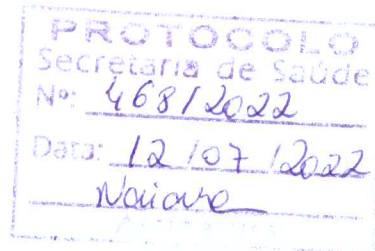 PROTOCOLO
Secretaria de Saúde
Nº: 468/2022
Data: 12/07/2022
Naiara